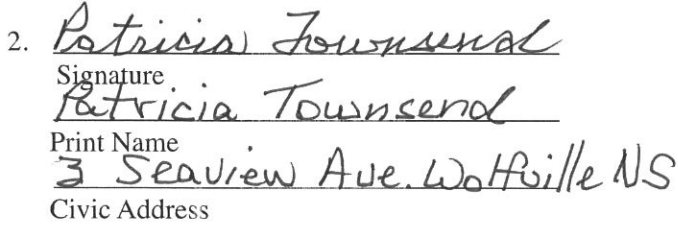 2. Patricia Townsend
Signature
Patricia Townsend
Print Name
3 Seaview Ave. Wolfville NS
Civic Address